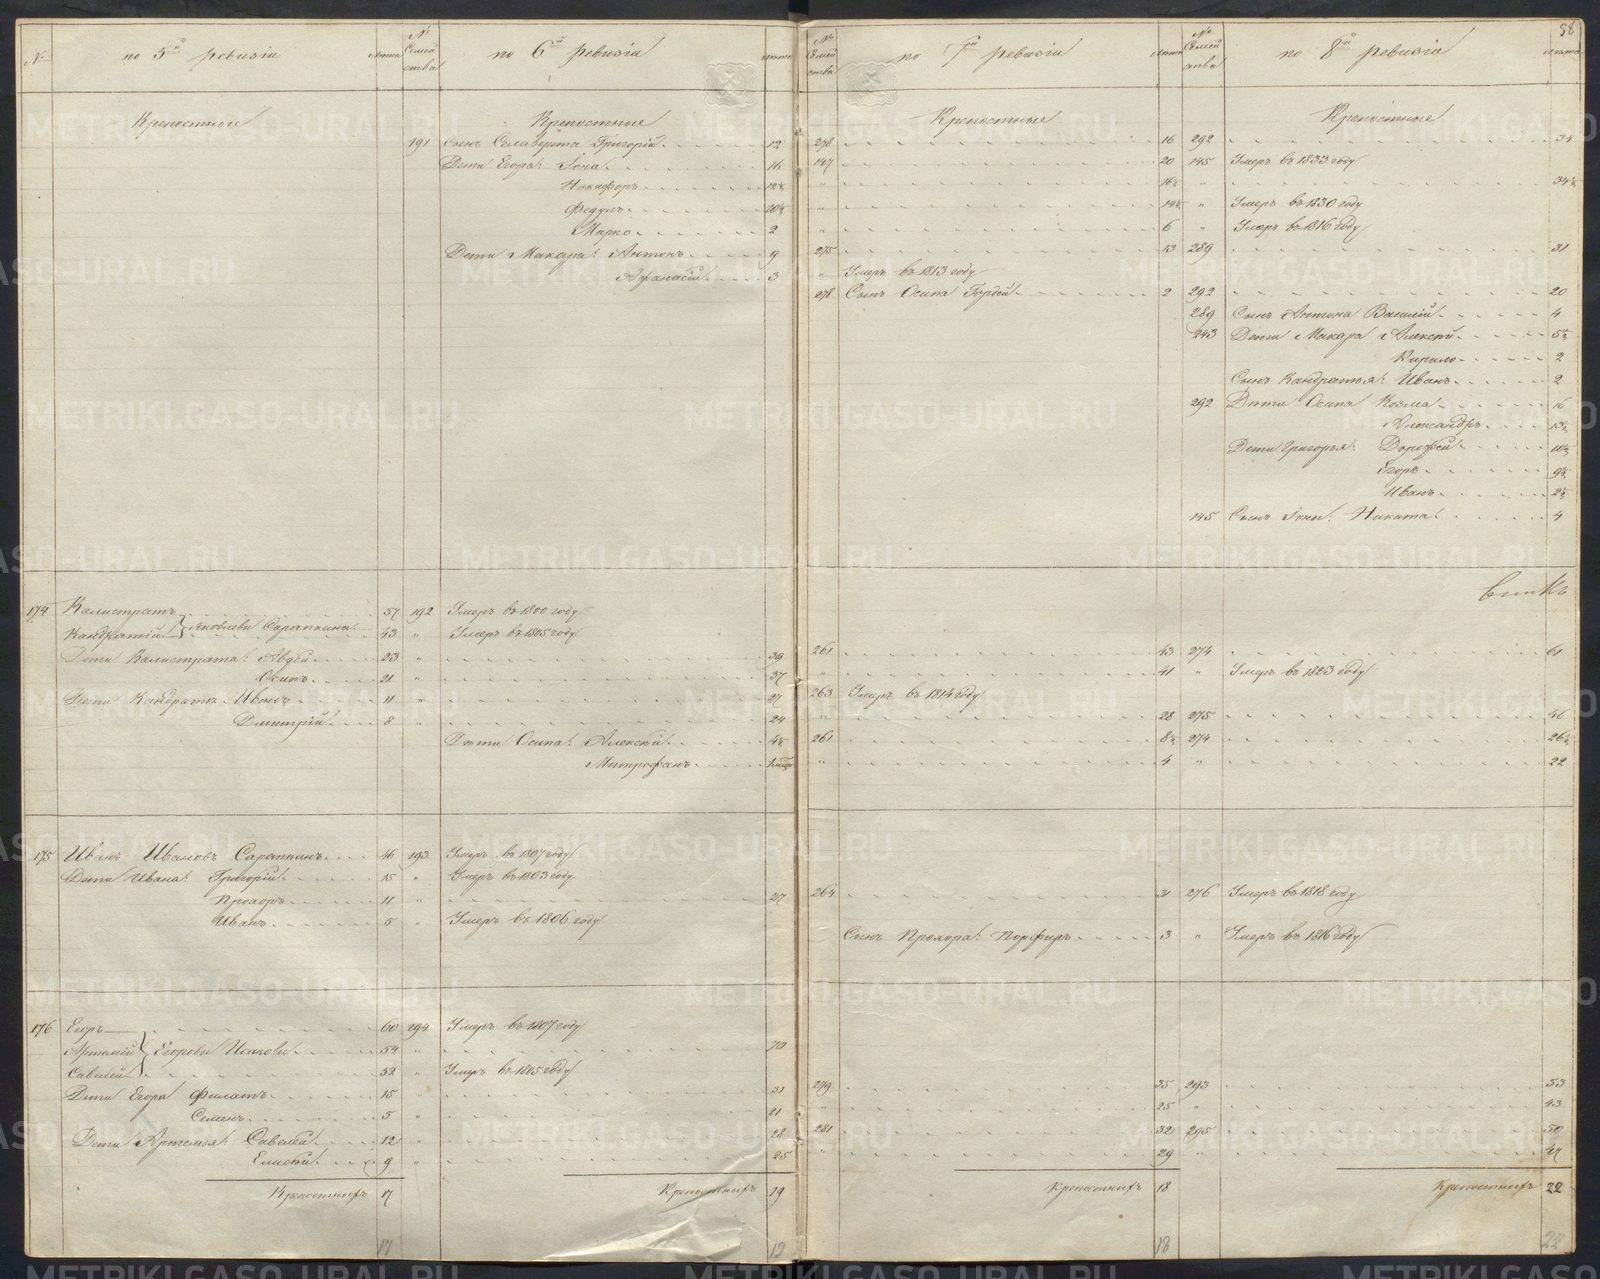 58
№ по 5й ревизіи лѣта № Семейства по 6й ревизіи лѣта № Семейства по 7й ревизіи лѣта № Семейства по 8й ревизіи лѣта
Крепостные Крепостные Крепостные Крепостные
191 Сынъ Григорій 12 278 16 292 34
Дети Егора: Іона 16 147 20 145 Умеръ въ 1833 году
Никифоръ 16½ 34½
Федулъ 10½ 14½ Умеръ въ 1830 году
Марко 2 6 Умеръ въ 1816 году
Дети Макара: Антонъ 9 275 13 289 31
Афанасій 3 Умеръ въ 1813 году
278 Сынъ Осипа Гордей 2 292 20
289 Сынъ Антона Василій 4
243 Дети Макара Алексѣй 5½
Кирило 2
Сынъ Кандратья: Иванъ 2
292 Дети Осипа Козма 16
Александръ 13½
Дети Григорья: Дорофей 10½
Егоръ 9½
Иванъ 2½
145 Сынъ Іоны: Никита 4
174 Калистратъ 57 192 Умеръ въ 1800 году
Кандратій Яковлевы Сарапкины 43 " Умеръ въ 1805 году
Дети Калистрата: Авдей 23 " 39 261 43 274 61
Осипъ 21 " 37 " 41 " Умеръ въ 1823 году
Дети Кандратья Иванъ 11 " 27 263 Умеръ въ 1814 году
Дмитрій 8 " 24 " 28 275 46
Дети Осипа: Алексѣй 4½ 261 8½ 274 26½
Митрофанъ 1 " 4 " 22
175 Иванъ Ивановъ Сарапкинъ 46 193 Умеръ въ 1807 году
Дети Ивана: Григорій 15 " Умеръ въ 1803 году
Прохоръ 11 " 27 264 31 276 Умеръ въ 1818 году
Иванъ 5 " Умеръ въ 1806 году
Сынъ Прохора: Порфиръ 3 " Умеръ въ 1816 году
176 Егоръ 60 194 Умеръ въ 1807 году
Артемій Егоровы Исаковы 54 " 70
Савелей 52 " Умеръ въ 1805 году
Дети Егора Филатъ 15 " 31 279 35 293 53
Семенъ 5 " 21 " 25 " 43
Дети Артемья: Савелей 12 " 28 281 32 295 50
Елисѣй 9 " 25 " 29 " 47
Крепостныхъ 17 Крепостныхъ 19 Крепостныхъ 18 Крепостныхъ 22
17 19 18 22
METRIKI.GASO-URAL.RU